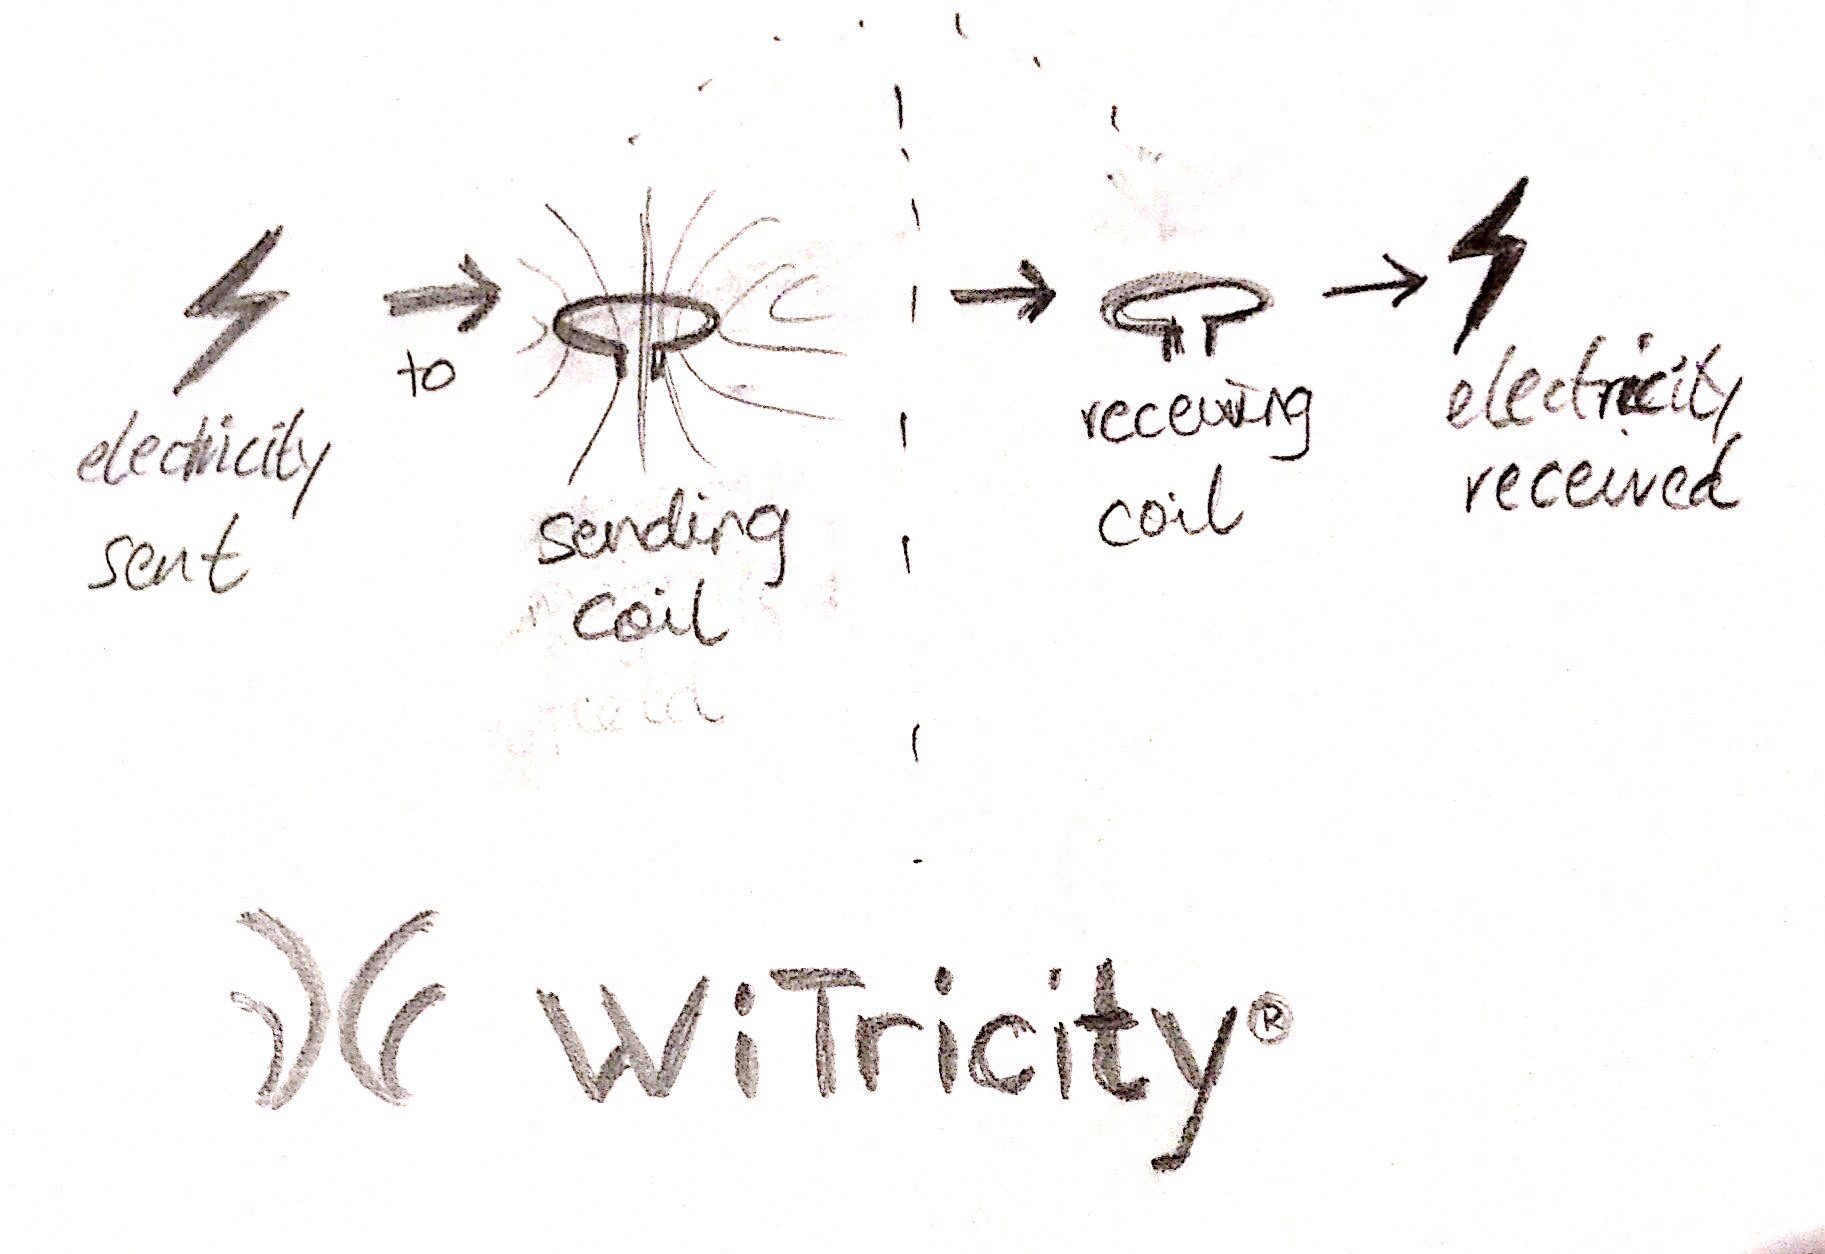 electricity
sent
to
sending
coil
receiving
coil
electricity
received
WiTricity®